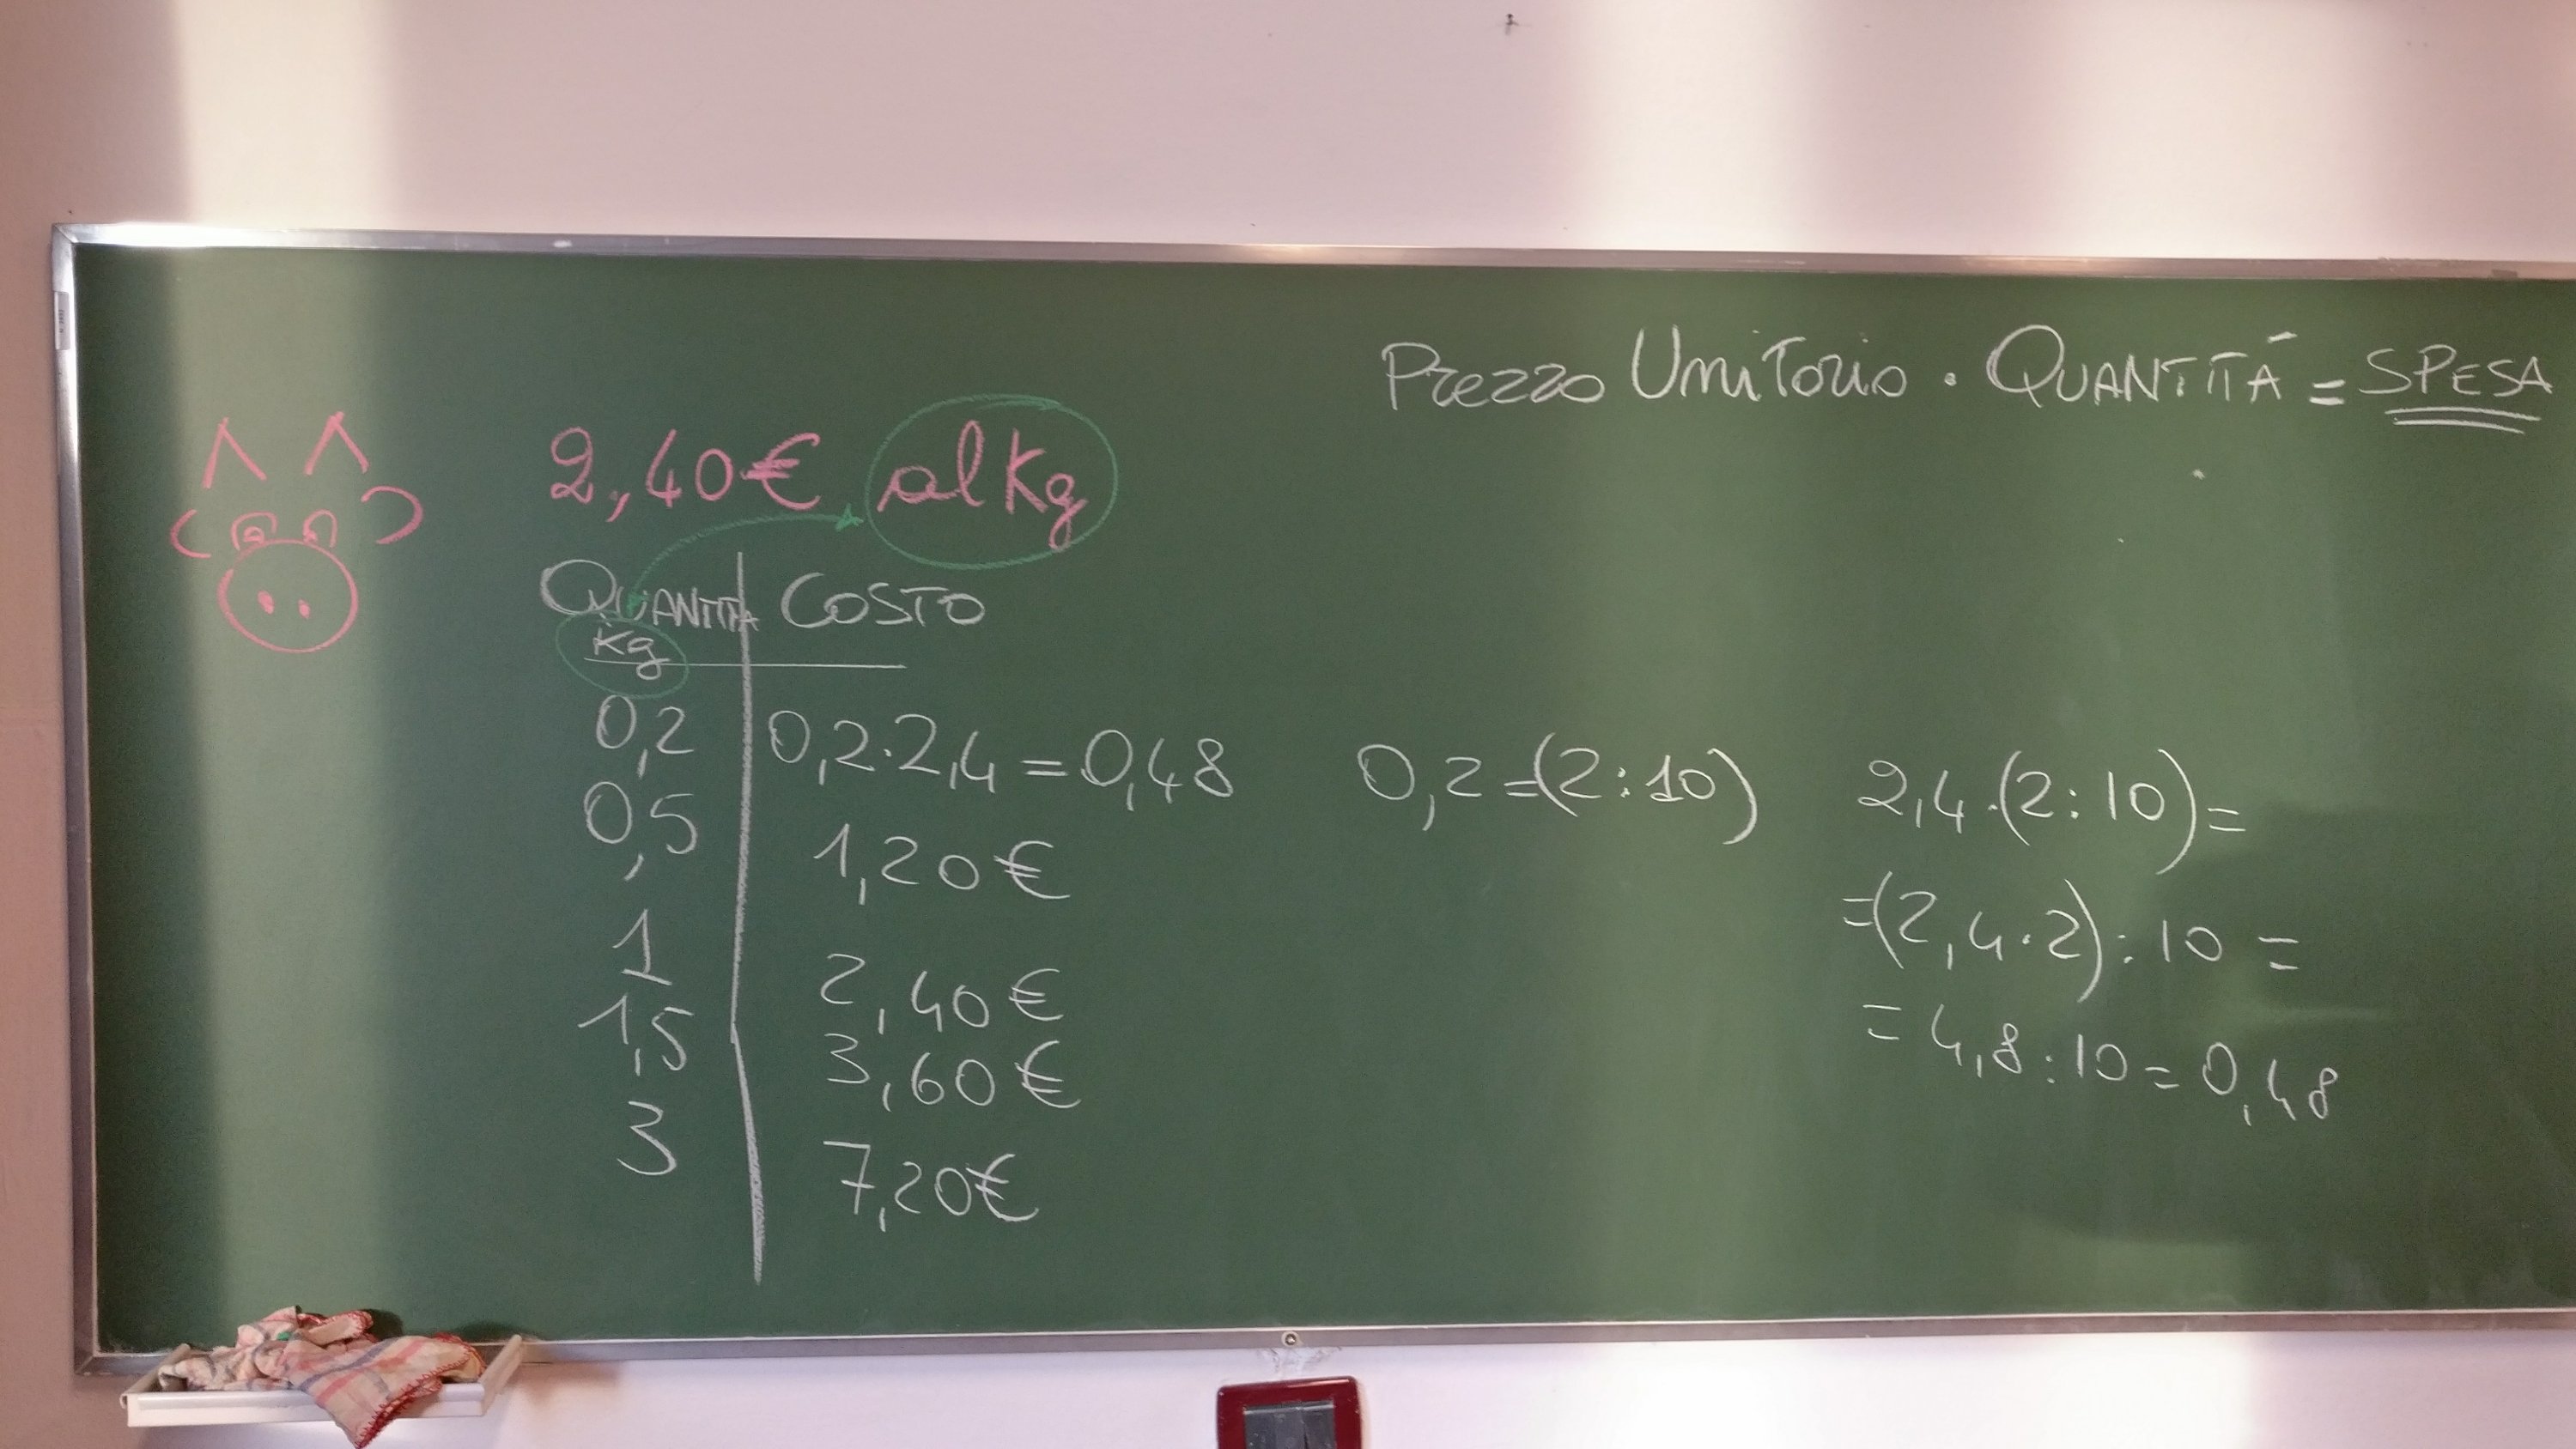 Prezzo Unitario · QUANTITÁ = SPESA
2,40€ al Kg
QUANTITA COSTO
Kg
0,2 0,2·2,4=0,48 0,2=(2:10) 2,4·(2:10)=
0,5 1,20€ =(2,4·2):10=
1 2,40€ =4,8:10=0,48
1,5 3,60€
3 7,20€